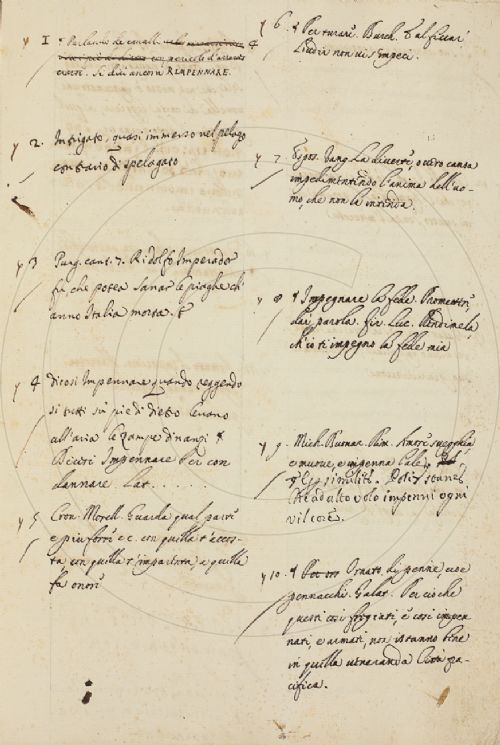 y I ¶ Parlando de cavalli
con pericolo d'arrovesciarsi. Si dice ancora REMPENNARE.
y 2. Intrigato, quasi immerso nel pelago
contrario di spelagato
y 3 Purg. cant. 7. Ridolfo Imperador
fu, che potea sanar le piaghe ch'
anno Italia morta.
y 4 dicosi Impennare quando reggendo
si tutti su i piedi dietro levano
all'aria le zampe dinanzi
Per con
dannare. Lat. . . . . . .
y 5 Cron. Morell. Guarda qual parte
è più forte e c. con quella t'accos-
ta, con quella t'imparenta e quella
fa onore
y 6. ¶ Per turare. Burch. E al ficcar
non vi s'impeci.
y 7 Espos. Vang. La
impedimentendo l'anima dell'uo-
mo, che non la intenda.
y 8 ¶ Impegnare la fede. Promettere,
dar parola. Fir. Luc. Rendimela,
ch'io ti impegno la fede mia
y 9. Mich. Buonar. Rim. Amore sveglia
e muove, e impenna l'ale
E adulto volo impenni ogni
vil core.
y 10. ¶ Ornato di penne, cioè
pennacchi. Galat. Perciochè
questi così fregiati, e così impen
nati, e armati, non istanno bene
in quella veneranda Città pa-
cifica.